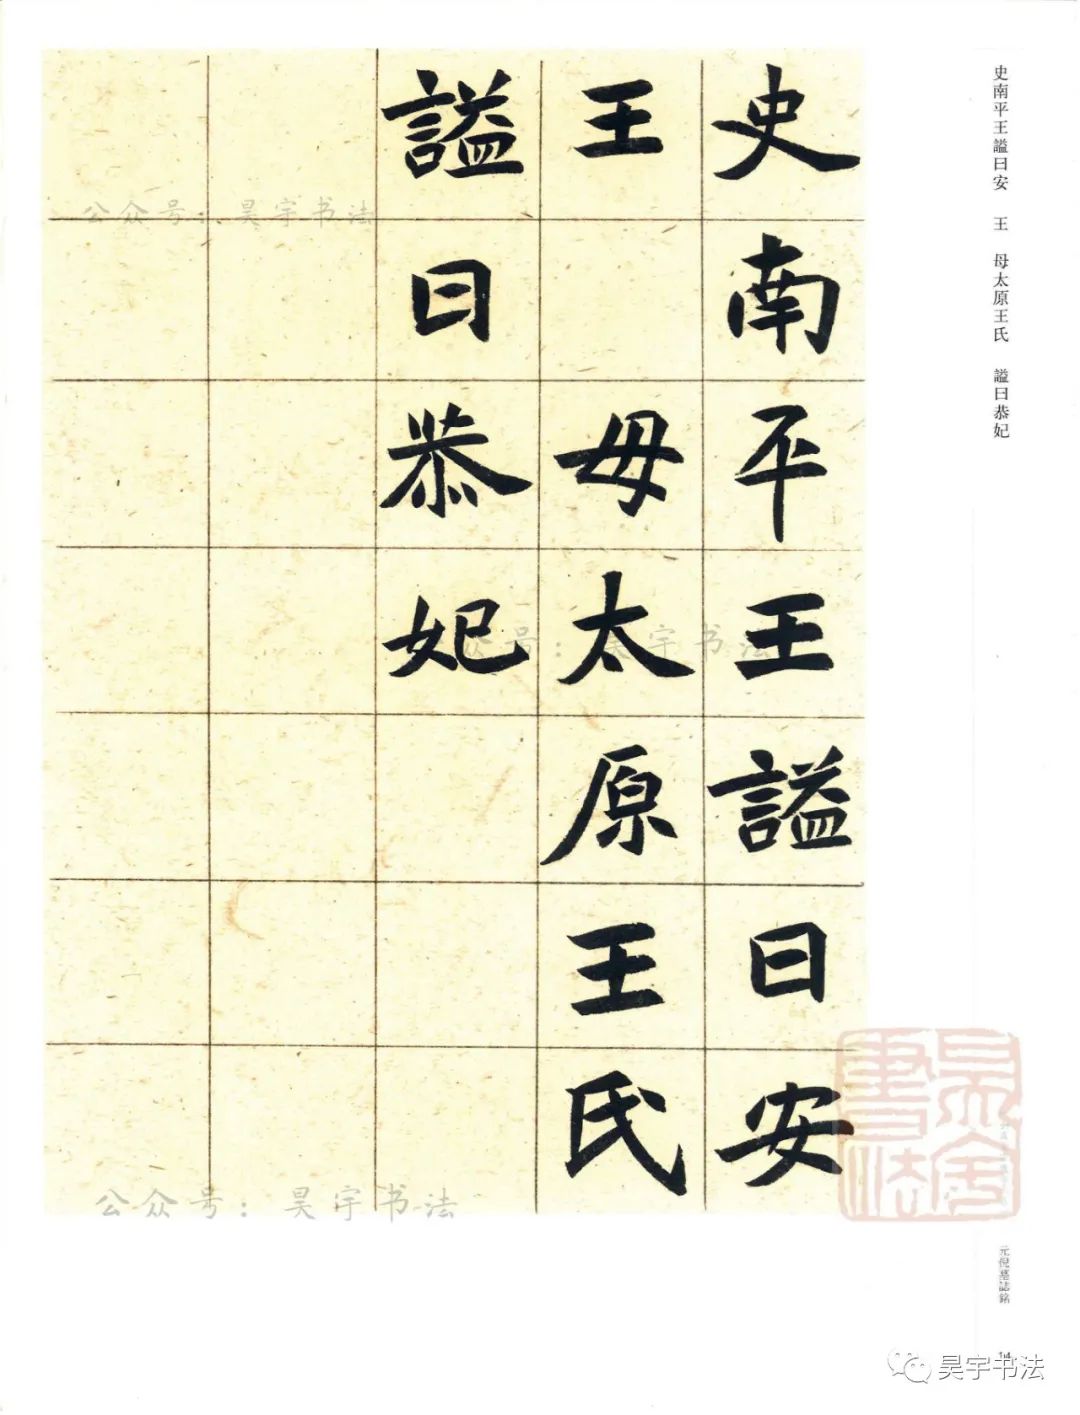 史南平王謚曰安　王　母太原王氏　謚曰恭妃
史南平王謚曰安
王　母太原王氏
謚曰恭妃
公众号：昊宇书法
公众号：昊宇书法
众号：昊宇书法
昊宇書法
元倪墓誌銘
14
昊宇书法